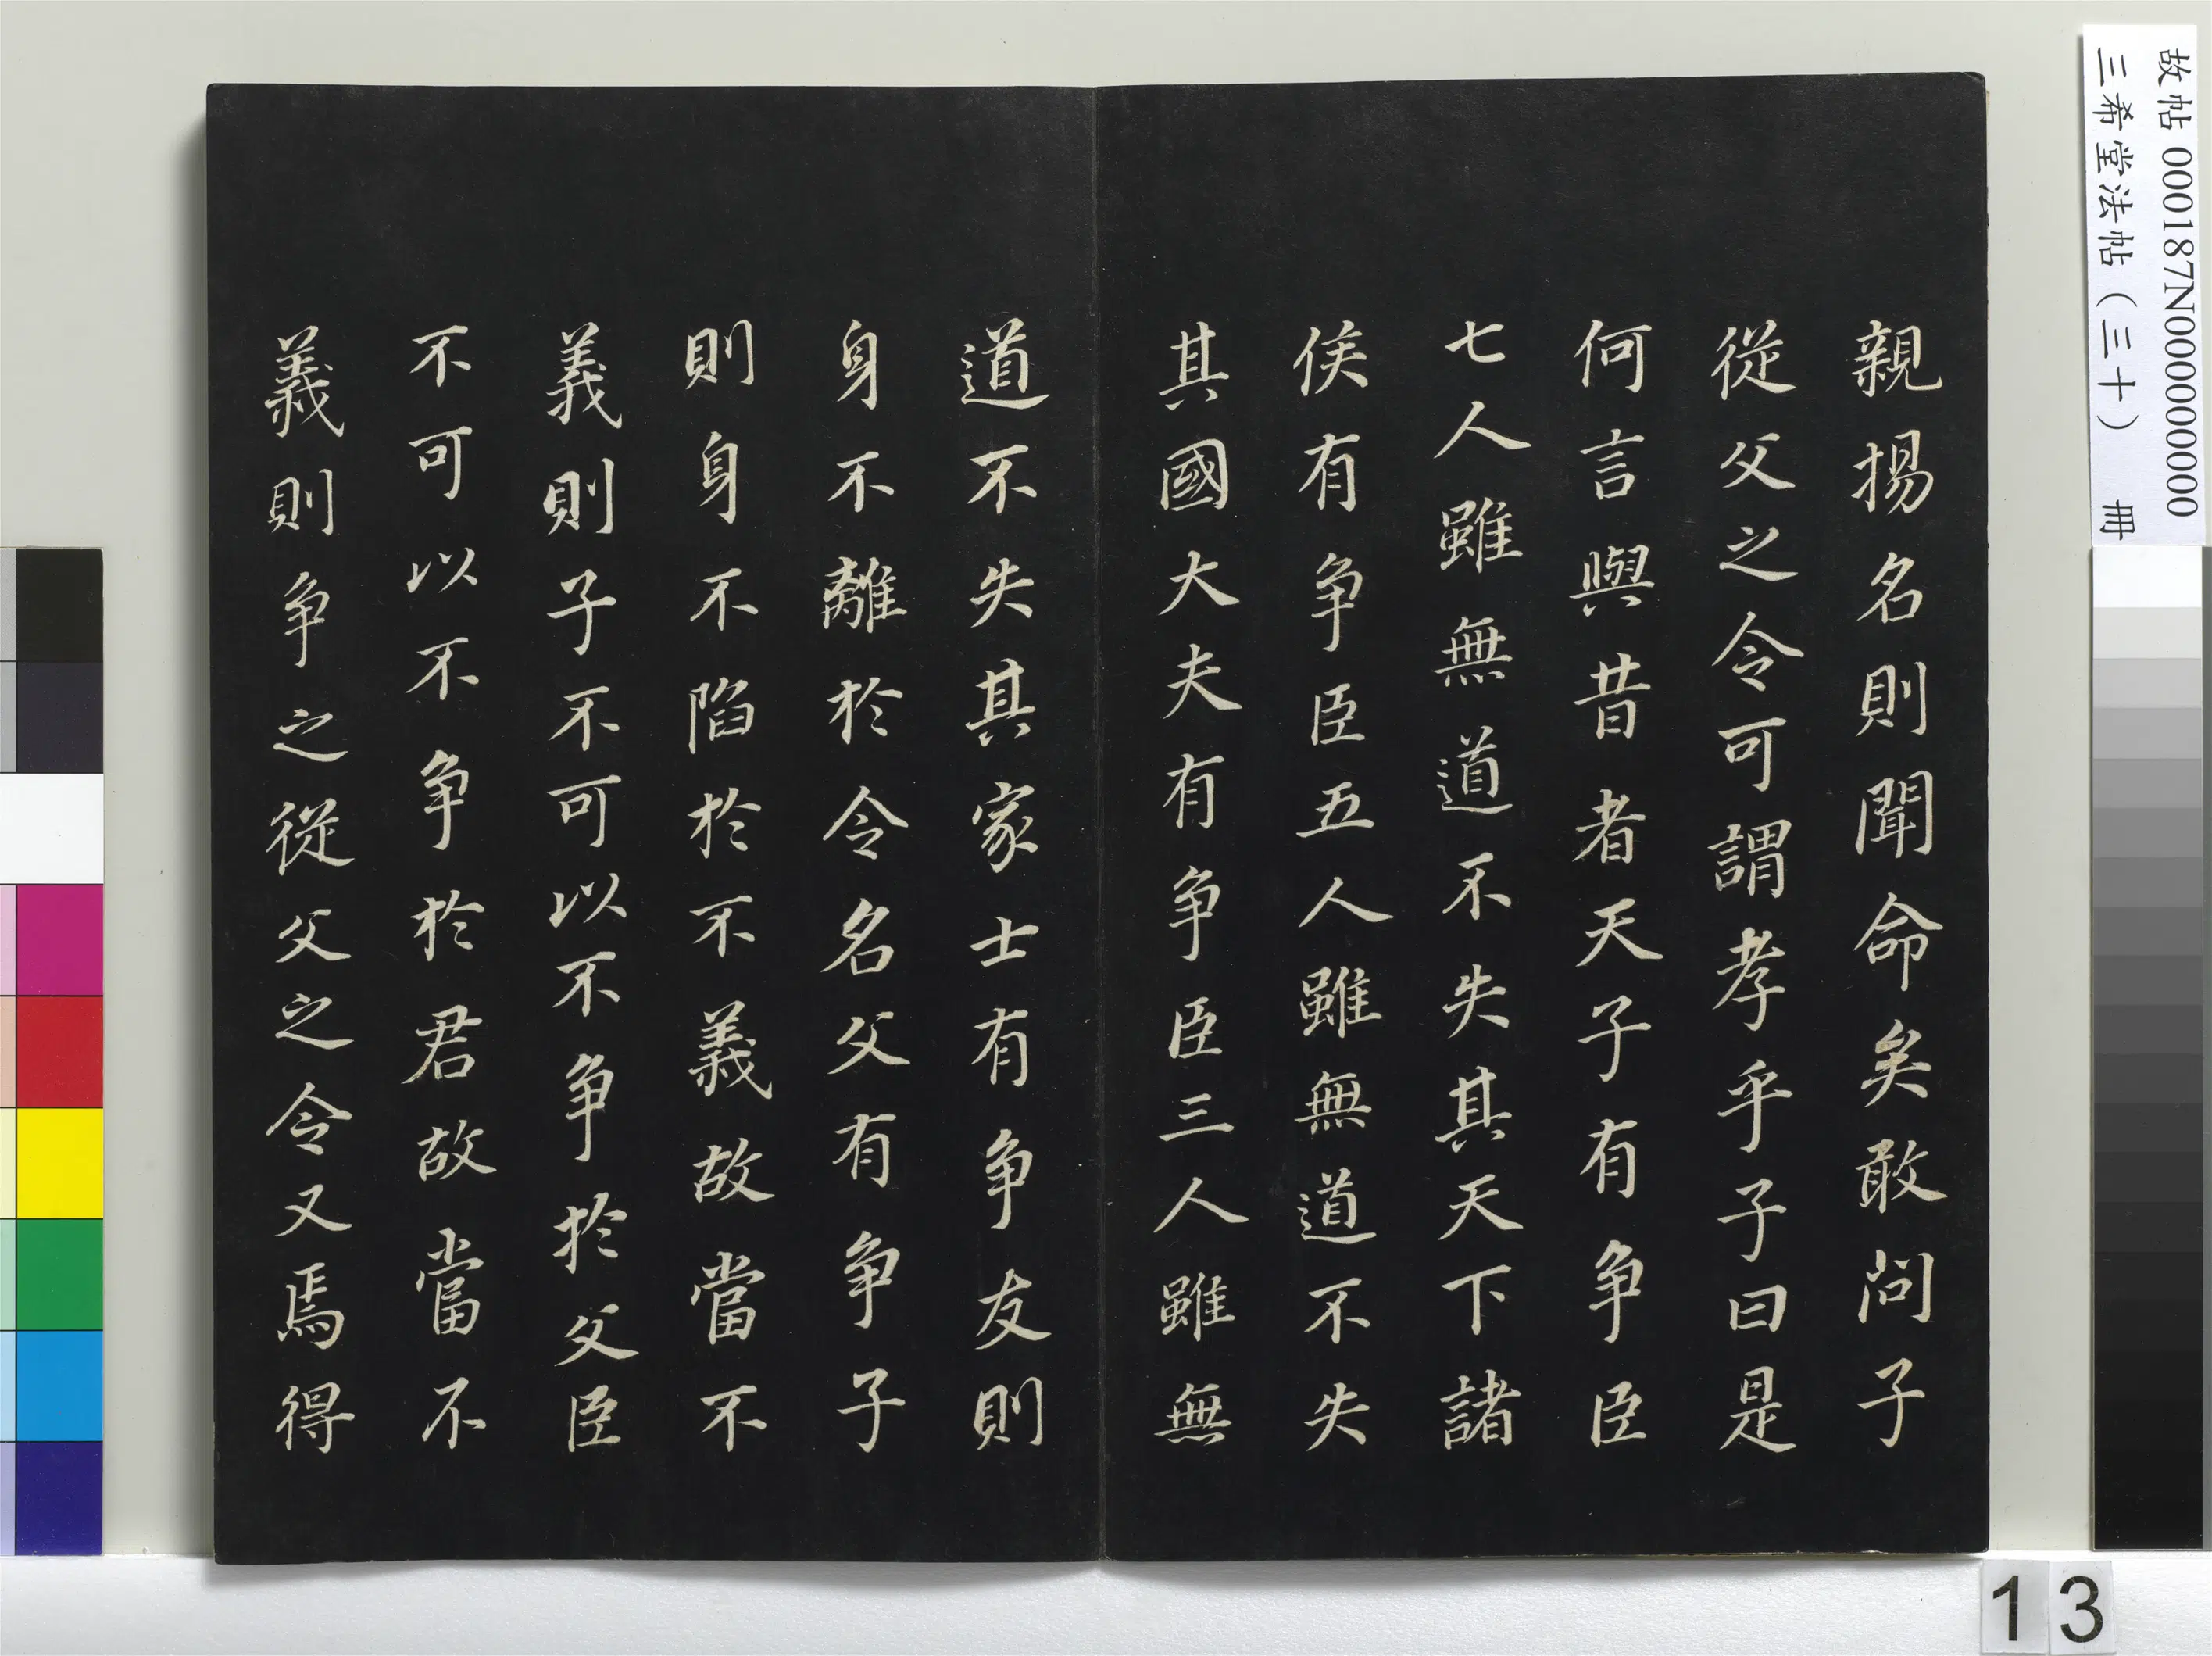 故帖 000187N000000000
三希堂法帖（三十） 冊
親揚名則聞命矣敢問子
從父之令可謂孝乎子曰是
何言與昔者天子有争臣
七人雖無道不失其天下諸
侯有争臣五人雖無道不失
其國大夫有争臣三人雖無
道不失其家士有争友則
身不離於令名父有争子
則身不陷於不義故當不
義則子不可以不争於父臣
不可以不争於君故當不
義則争之從父之令又焉得
13